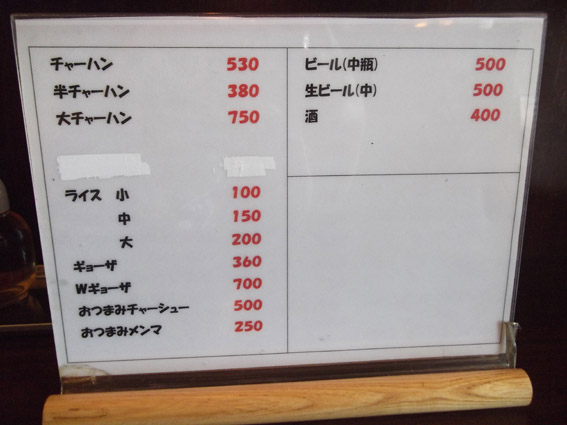 チャーハン 530
半チャーハン 380
大チャーハン 750
ライス 小 100
中 150
大 200
ギョーザ 360
Wギョーザ 700
おつまみチャーシュー 500
おつまみメンマ 250
ビール(中瓶) 500
生ビール(中) 500
酒 400